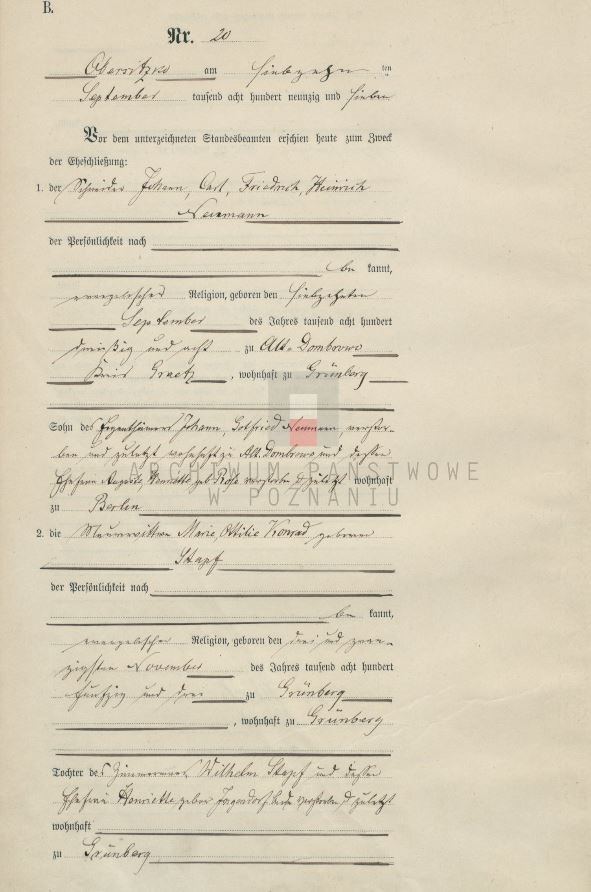 B.
Nr. 20
Obersitzko am siebzehn ten
September tausend acht hundert neunzig und sieben
Vor dem unterzeichneten Standesbeamten erschien heute zum Zweck
der Eheschließung:
1. der Schneider Johann, Carl, Friedrich, Heinrich
Neumann
der Persönlichkeit nach
be kannt,
evangelischer Religion, geboren den siebzehnten
September des Jahres tausend acht hundert
dreißig und acht zu Alt-Dombrowo
Kreis Graetz, wohnhaft zu Grünberg
Sohn des Eigenthümers Johann, Gotfried Neumann, verstor-
ben und zuletzt wohnhaft zu Alt-Dombrowo und dessen
Ehefrau Henriette geb. verstorben & zuletzt wohnhaft
zu Berlin
ARCHIWUM PAŃSTWOWE
W POZNANIU
2. die Maurerwittwe Marie, Ottilie Konrad geborene
Stapf
der Persönlichkeit nach
be kannt,
evangelischer Religion, geboren den drei und zwan-
zigsten November des Jahres tausend acht hundert
fünfzig und drei zu Grünberg
, wohnhaft zu Grünberg
Tochter des Zimmermanns Wilhelm Stapf und dessen
Ehefrau Henriette geboren beide verstorben & zuletzt
wohnhaft
zu Grünberg